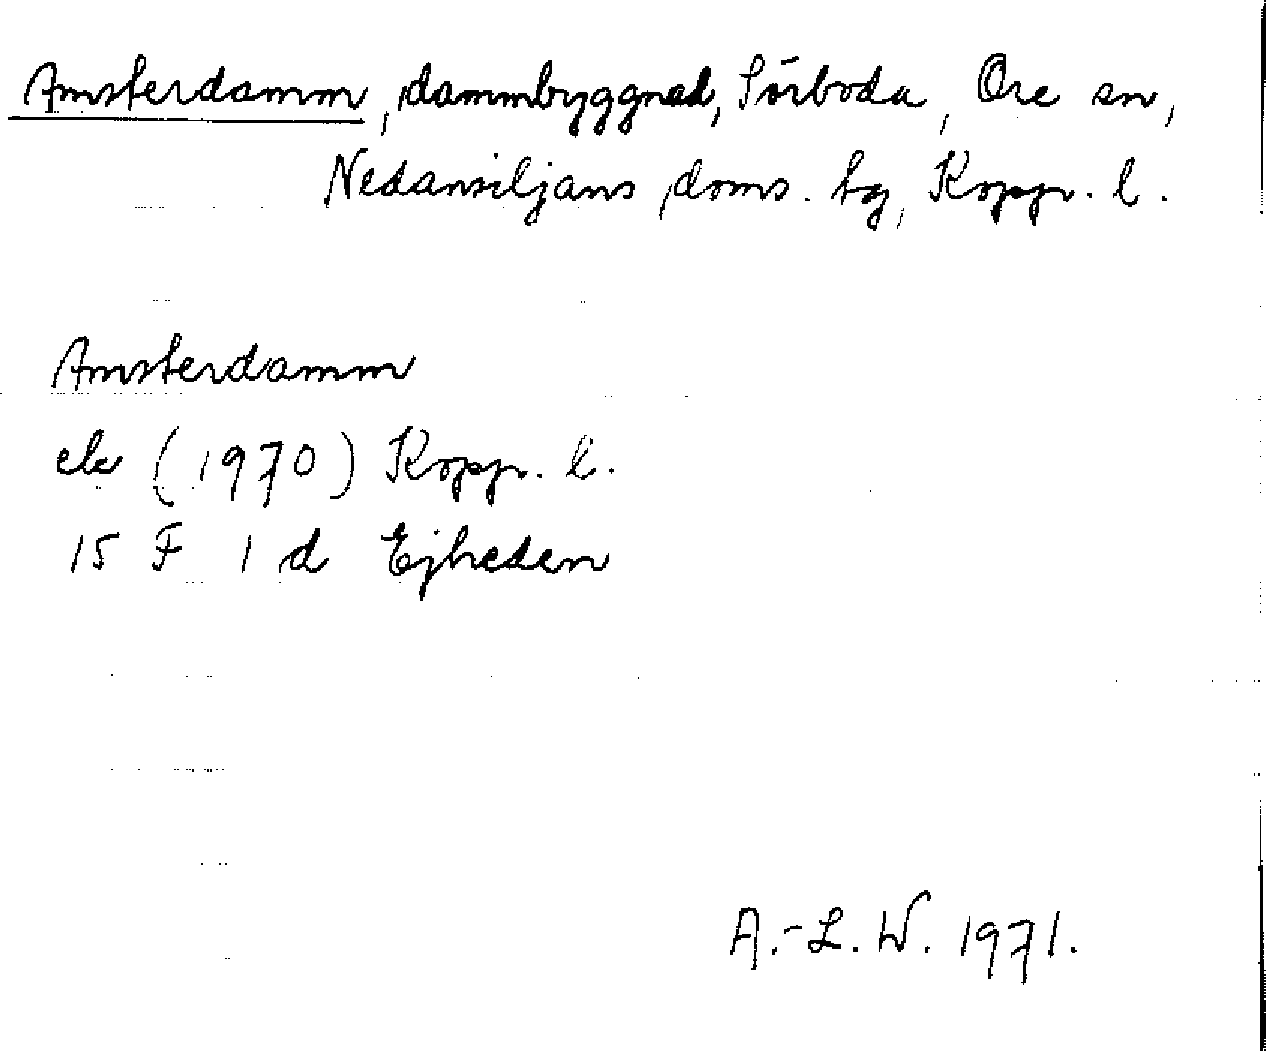 Amsterdamm, dammbyggnad, Sörboda, Ore sn,
Nedansiljans doms. tg, Koppr. l.
Amsterdamm
ek (1970) Koppr. l.
15 F 1 d Ejheden
A.-L. W. 1971.